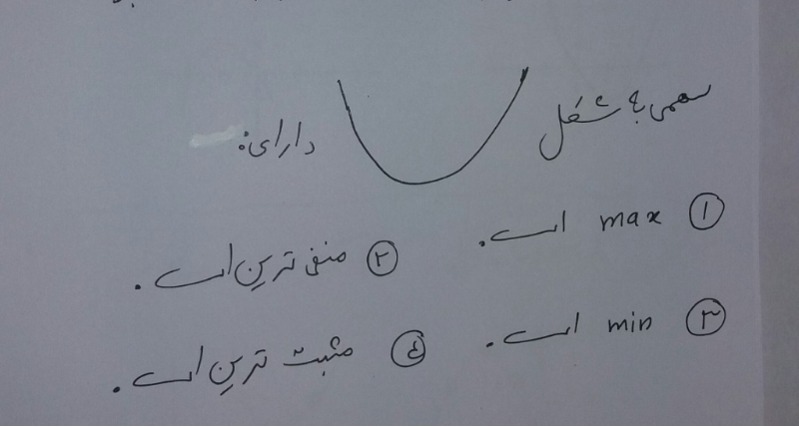 سهمی به شکل دارای:
① max است.
② منفی ترین است.
③ min است.
④ مثبت ترین است.